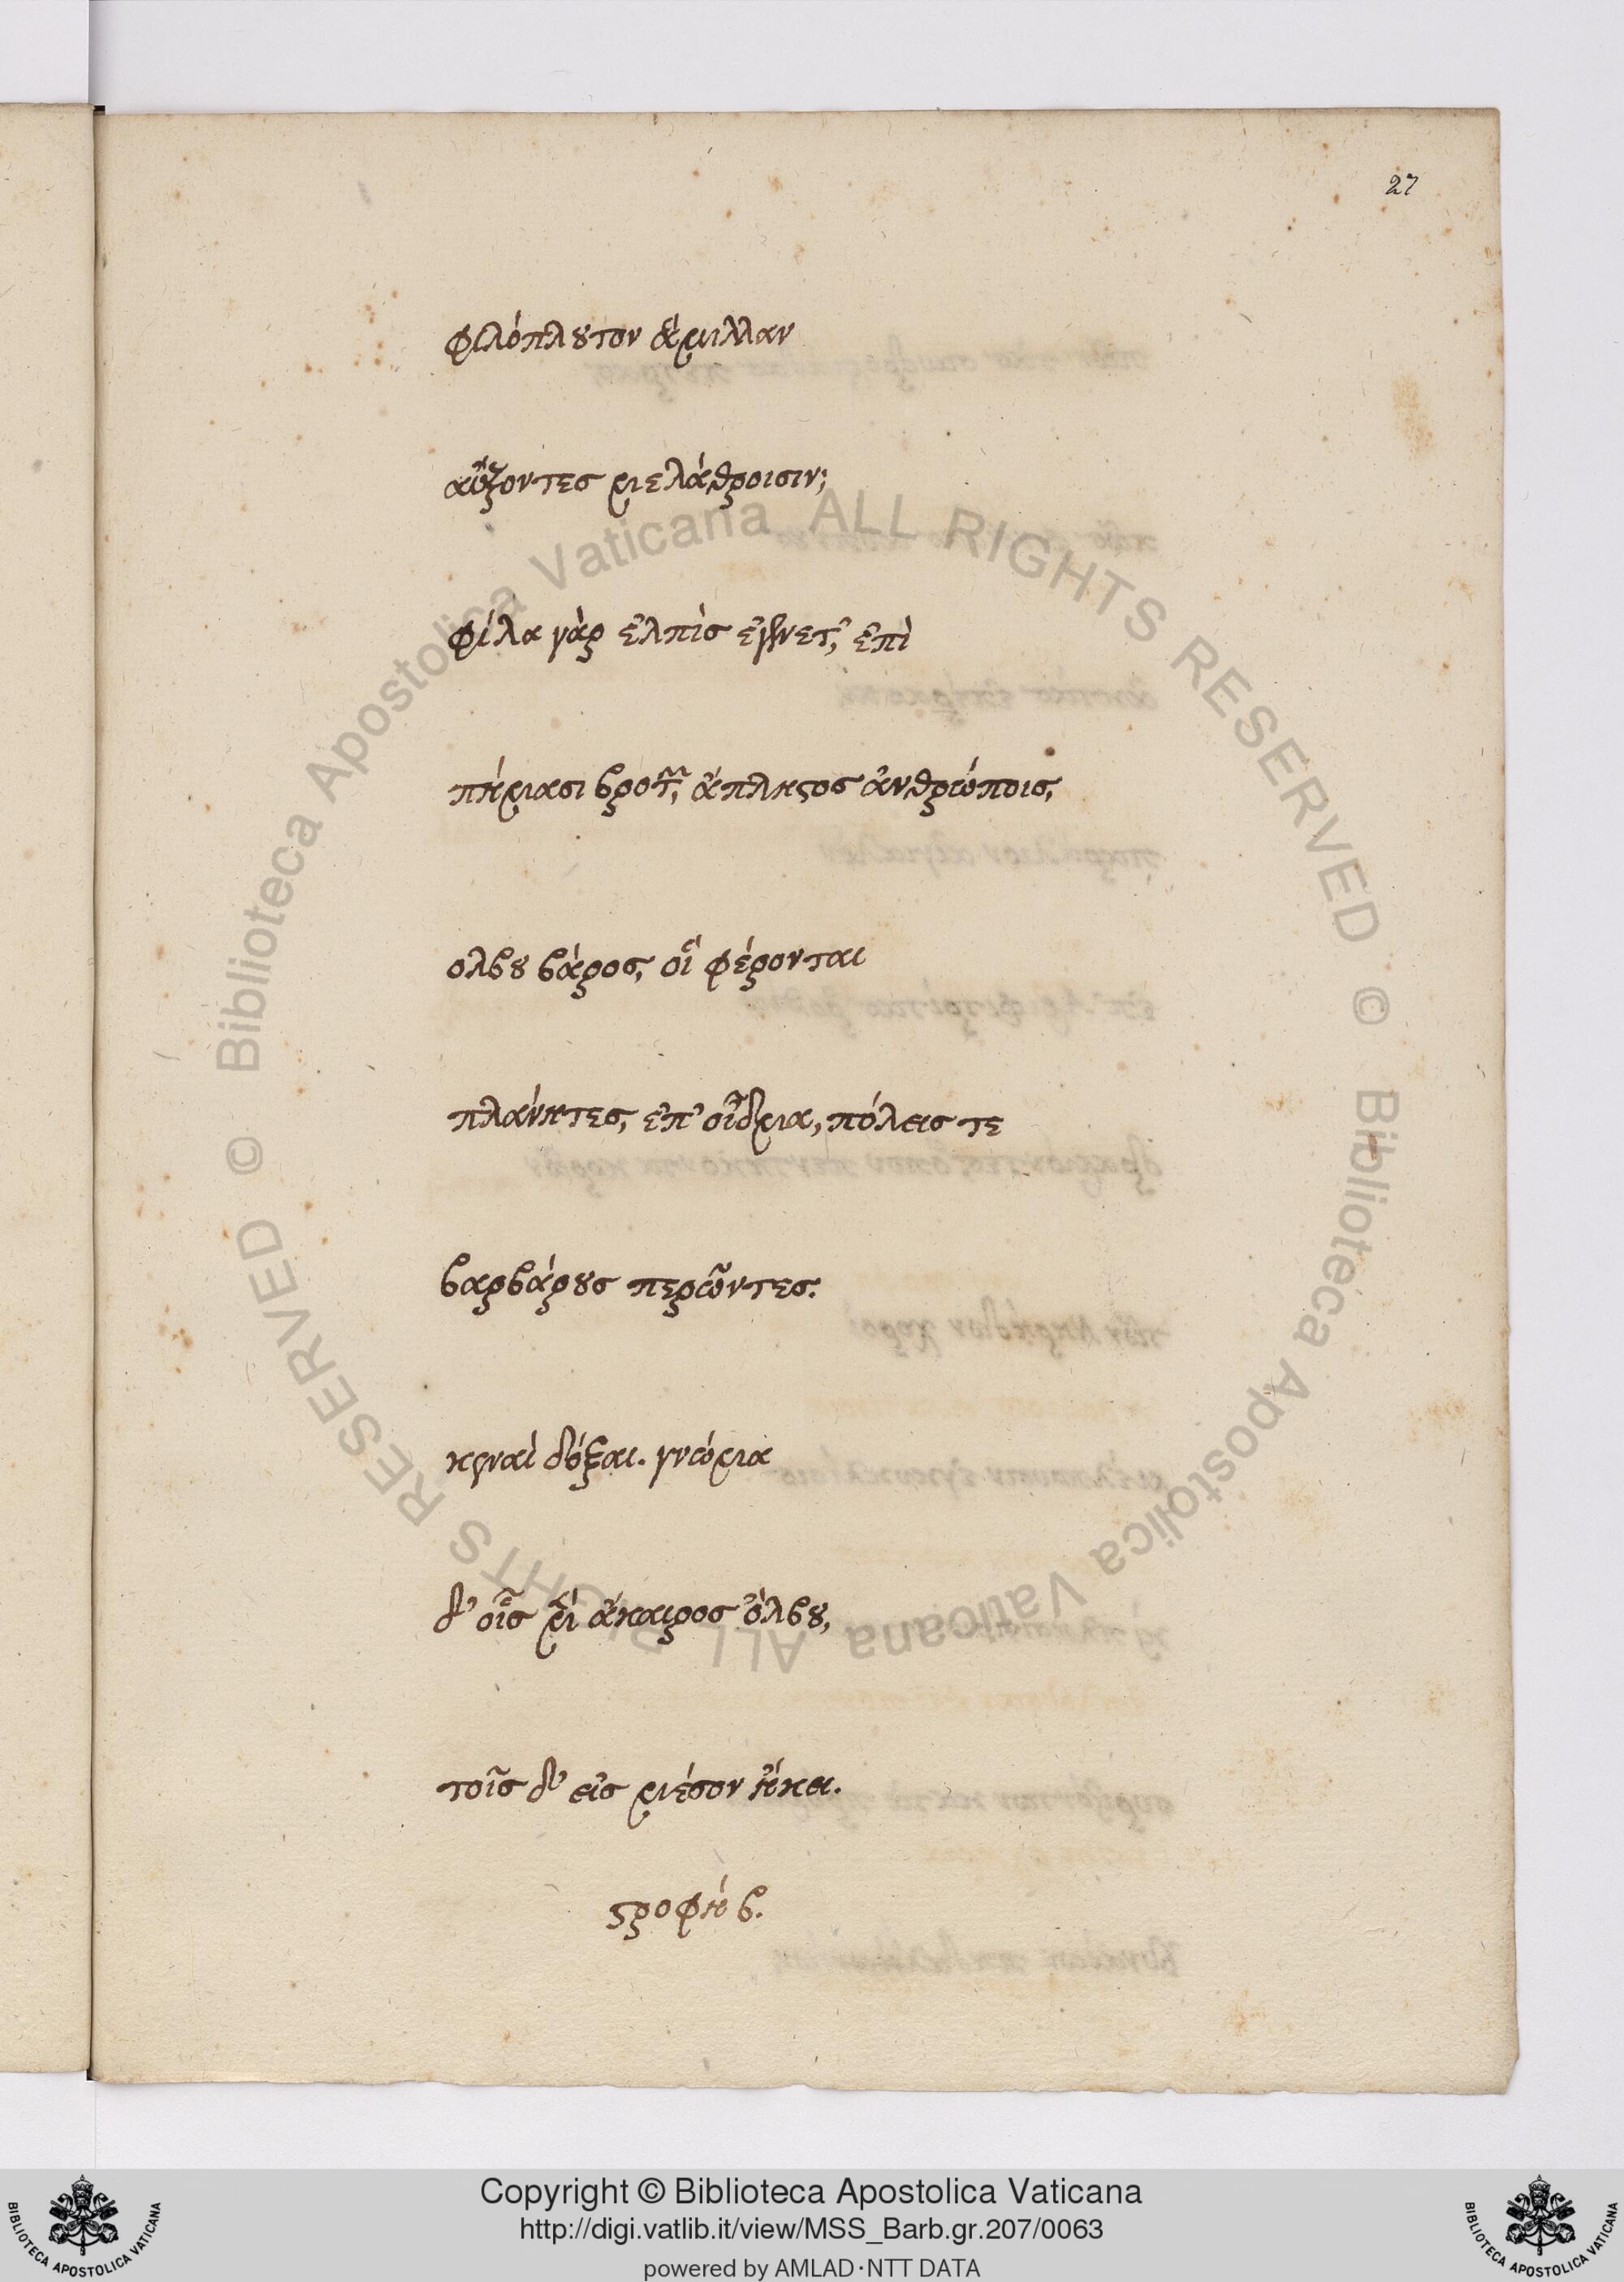 27
φιλόπλουτον ἅμιλλαν
αὔξοντες μελάθροισιν;
φίλα γὰρ ἐλπὶς ἐγένετ', ἐπὶ
πήμασι βροτῶν, ἄπληστος ἀνθρώποις,
ολβου βάρος, οἳ φέρονται
πλάνητες, ἐπ' οἶδμα, πόλεις τε
βαρβάρους περῶντες.
κεναὶ δόξαι. γνώμα
δ' οἷς μὲν ἄκαιρος ὄλβου,
τοῖς δ' εἰς μέσον ἥκει.
στροφὴ β.
© Biblioteca Apostolica Vaticana ALL RIGHTS RESERVED
© Biblioteca Apostolica Vaticana ALL RIGHTS RESERVED
Copyright © Biblioteca Apostolica Vaticana
http://digi.vatlib.it/view/MSS_Barb.gr.207/0063
powered by AMLAD·NTT DATA
BIBLIOTECA APOSTOLICA VATICANA
BIBLIOTECA APOSTOLICA VATICANA